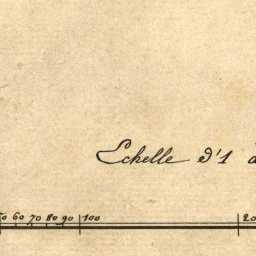 Echelle d'1
60 70 80 90 100